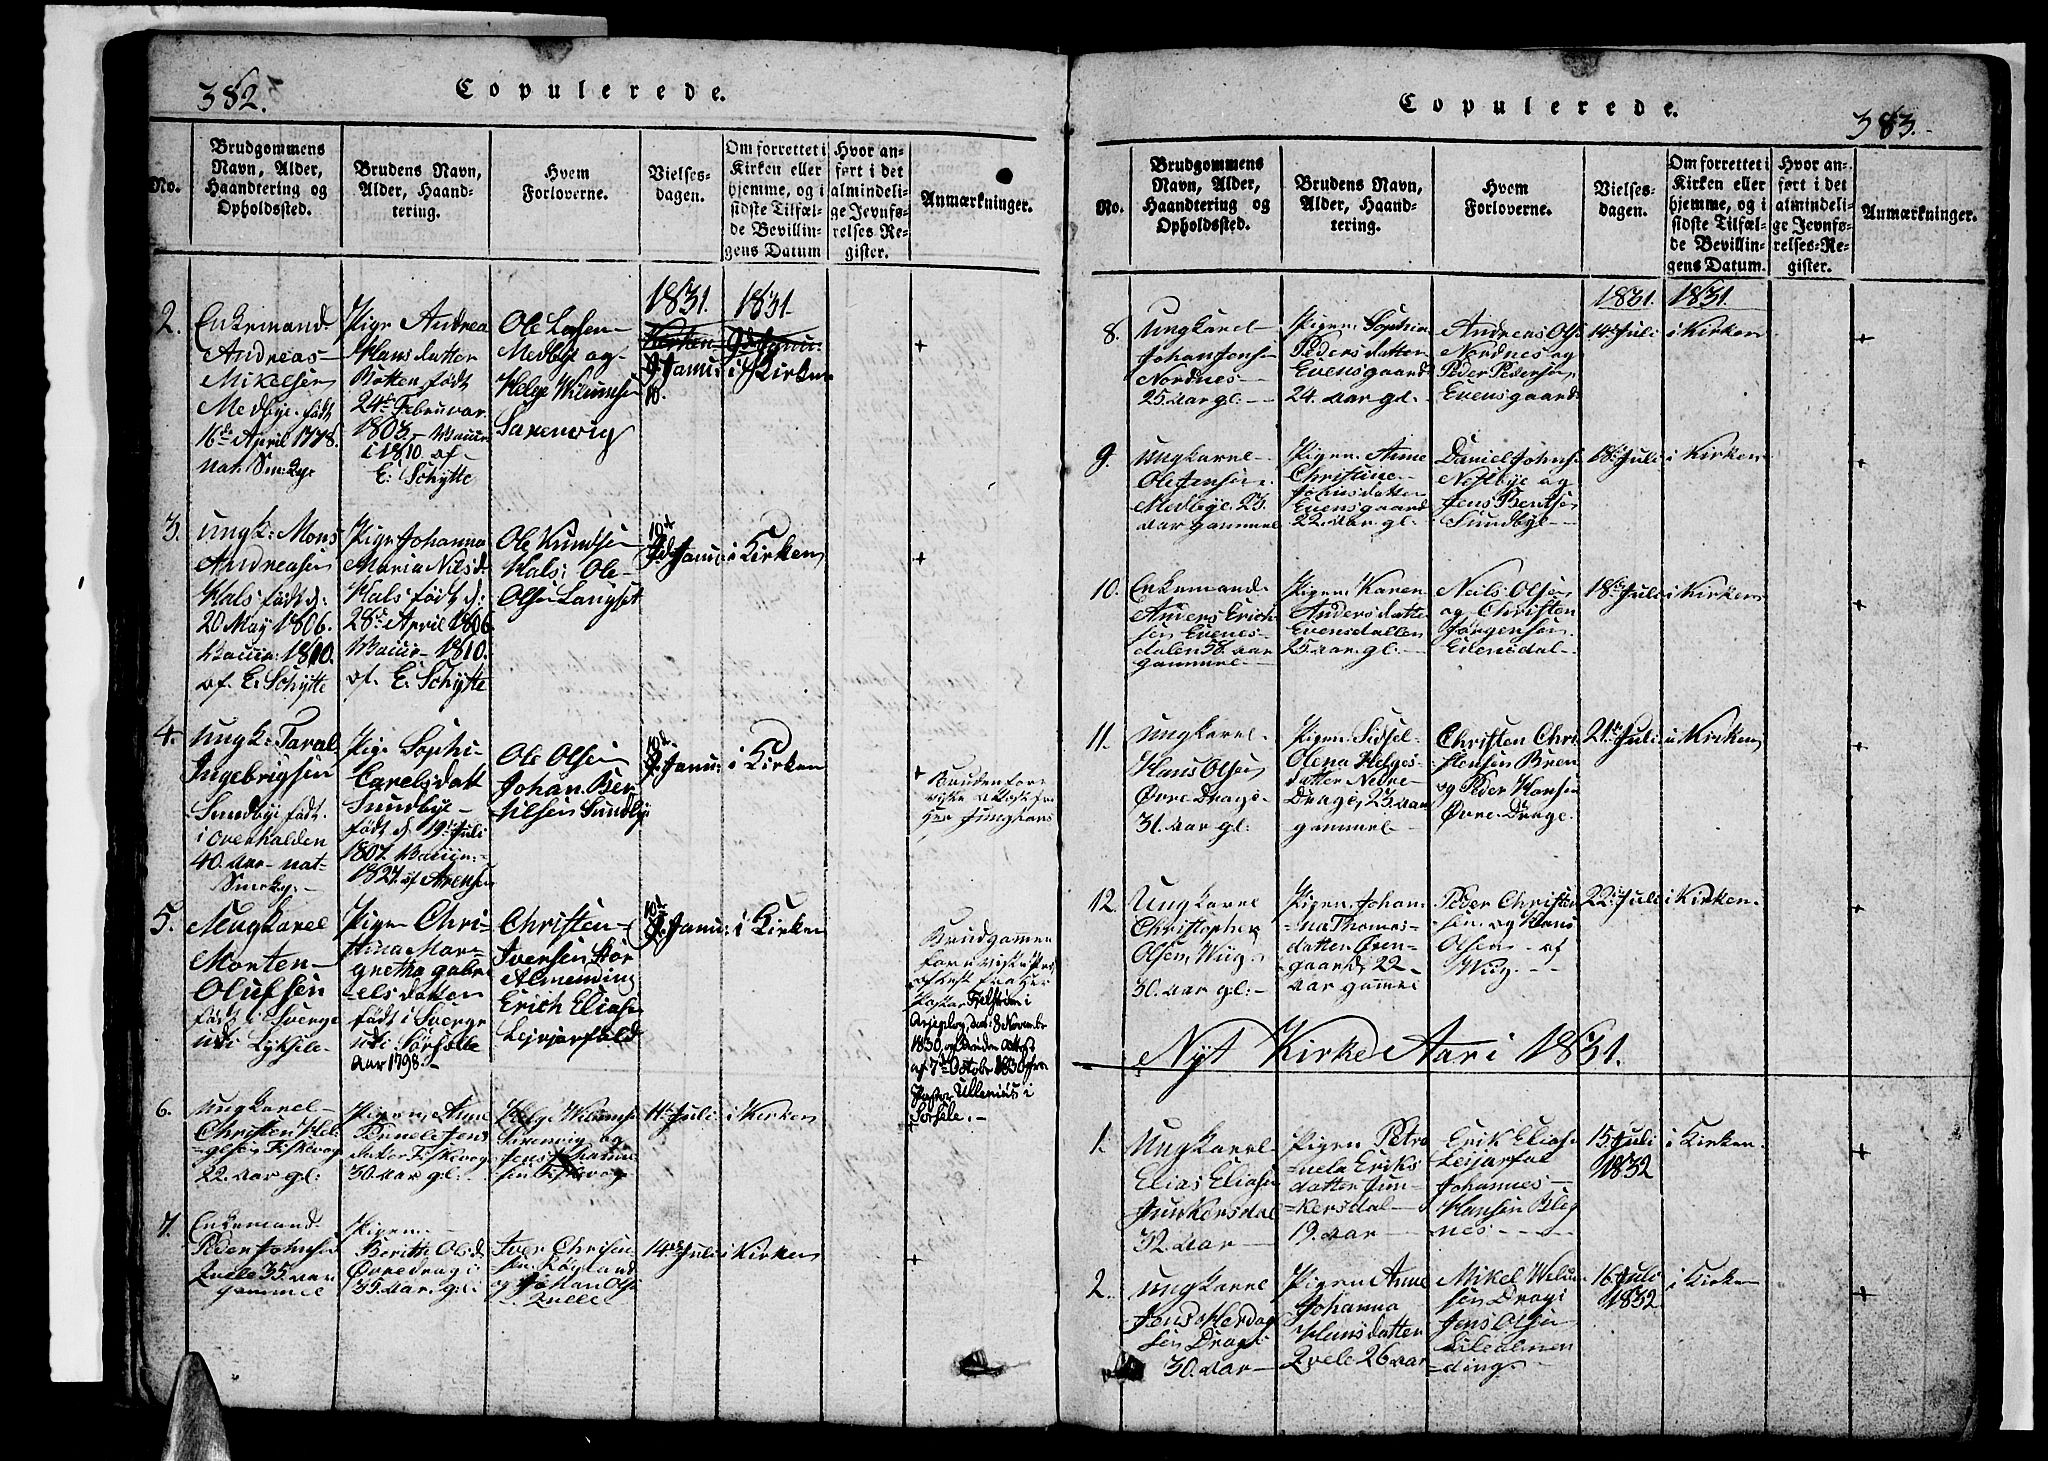 382.
Copulerede.
No.
Brudgommens
Navn, Alder,
Haandtering og
Opholdssted.
Brudens Navn,
Alder, Haand-
tering.
Hvem
Forloverne.
Vielses-
dagen.
Om forrettet i
Kirken eller
hjemme, og i
sidste Tilfæl-
de Bevillin-
gens Datum
Hvor an-
ført i det
almindeli-
ge Jevnfø-
relses-Re-
gister.
Anmærkninger.
1831. 1831.
2.
Enkemand
Andreas
Mikelsen
Medbye født
16de April 1778.
Pige Andrea
Hansdatter
Botten født
24de Februar
1803. Vaccin
i 1810. af
E: Schytte
Ole Larsen
Medbye og
Helge Wilumsen
Saxenvig
Janu:
10.
i Kirken
+
3.
Ungk: Mons
Andreasen
Hals født d:
20 May 1806.
Vaccin: 1810.
af E: Schytte
Pige Johanna
Maria Nilsd.
Hals født d:
28de April 1806
Vaccin 1810.
af E: Schytte
Ole Kundsen
Hals: Ole
Olsen Langset
Janu:
i Kirken
+
4.
Ungk: Taral
Ingebrigsen
Sundbye født
i Overhalden
40. Aar nat
Pige Sophi
Carelsdatt
Sundbye
født d. 19de Juli
1807. Vaccin:
1827. af Arensen
Ole Olsen
Johan Ber
tilsen Sundby
Janu:
i Kirken
+
5.
Ungkarel
Morten
Olufsen
født i Sverge
udi Lyksele
Pige Chri-
stina Mar-
gretha Gabri
elsdatter
født i Sverge
udi Sorsele
Aar 1798.
Christen
Iversen Stor
Almending
Erich Eliasen
Leirjorfald
Janu:
i Kirken
Brudgommen
Pastor
Arjeplog, den: 8 November
1830, og Bruden Attest
af 7de Octobr 1830 fra
Pastor Ullenius i
Sorsele.
6.
Ungkarel
Christen Hel-
gesen Fiskevog
22 Aar gl:
Pigen Anne
Pernele Jens
datter Fiskevog
30. Aar gl:
Helge Wilumsen
Saxenvig og
Jens
sen Fiskevog
11te Juli
i Kirken
7.
Enkemand
Peder Johnsen
Qvele 35. Aar
gammel
Pigen
Beritte Olsd.
Øvredragi
35 Aar. gl:
Iver Chrisen
sen Røgland
og Johan Olsen
Qvele
14de Juli
i Kirken
+
383.
Copulerede.
No.
Brudgommens
Navn, Alder,
Haandtering og
Opholdssted.
Brudens Navn,
Alder, Haand-
tering.
Hvem
Forloverne.
Vielses-
dagen.
Om forrettet i
Kirken eller
hjemme, og i
sidste Tilfæl-
de Bevillin-
gens Datum.
Hvor an-
ført i det
almindeli-
ge Jevnfø-
relses-Re-
gister.
Anmærkninger.
1831. 1831.
8.
Ungkarel
Johan Jonsen
Nordnes
25. Aar gl:
Pigen Sophia
Pedersdatter
Evensgaard
24. Aar gl.
Andreas Olsen
Nordnes og
Peder Pedersen
Evensgaard
14de Juli
i Kirken
+
9.
Ungkarel
Ole Jensen
Medbye. 23.
Aar gammel
Pigen Anne
Christine
Johnsdatter
Evensgaard
22. Aar. gl:
Daniel Johnsen
Nestbye og
Jens Bentsen
Sundbye
18de Juli
i Kirken
+
10.
Enkemand
Anders Erich-
sen Evenes-
dalen 58. Aar
gammel
Pigen Karen
Andersdatter
Evensdallen
25 Aar. gl:
Niels Olsen
og Christen
Jørgensen
Evensdal
18de Juli
i Kirken
+
11.
Ungkarel
Hans Olsen
Øvre Drage
31. Aar gl:
Pigen Sidsel
Olena Helges-
datter Nedre
Dragi, 23. Aar
gammel
Christen Chri
stensen Bren
og Peder Hansen
Øvre Drage
21de Juli
i Kirken
+
12.
Ungkarel
Christopher
Olsen Wiig
30. Aar gl:
Pigen Johan-
na Thomes-
datter Øven-
gaard, 22
Aar gammel
Peder Christen
sen og Hans
Olsen af
Wiig.
22de Juli
i Kirken
+
Nyt Kirke Aar i 1831.
1.
Ungkarel
Elias Eliasen
Junkersdal
32. Aar
Pigen Petro
nela Eriks
datter Jun-
kersdal
19. Aar
Erik Eliasen
Leijarfal
Johannes
Hansen Bleg
nes
15. Juli
1832
i Kirken
+
2.
Ungkarel
Jens Herdag
sen Dragi
30. Aar
Pigen Anne
Johanna
Hansdatter
Qvele 26 Aar
Mikel Wilum
sen Dragi
Jens Olsen
Lilealmen
ding.
16 Juli
1832
i Kirken
+